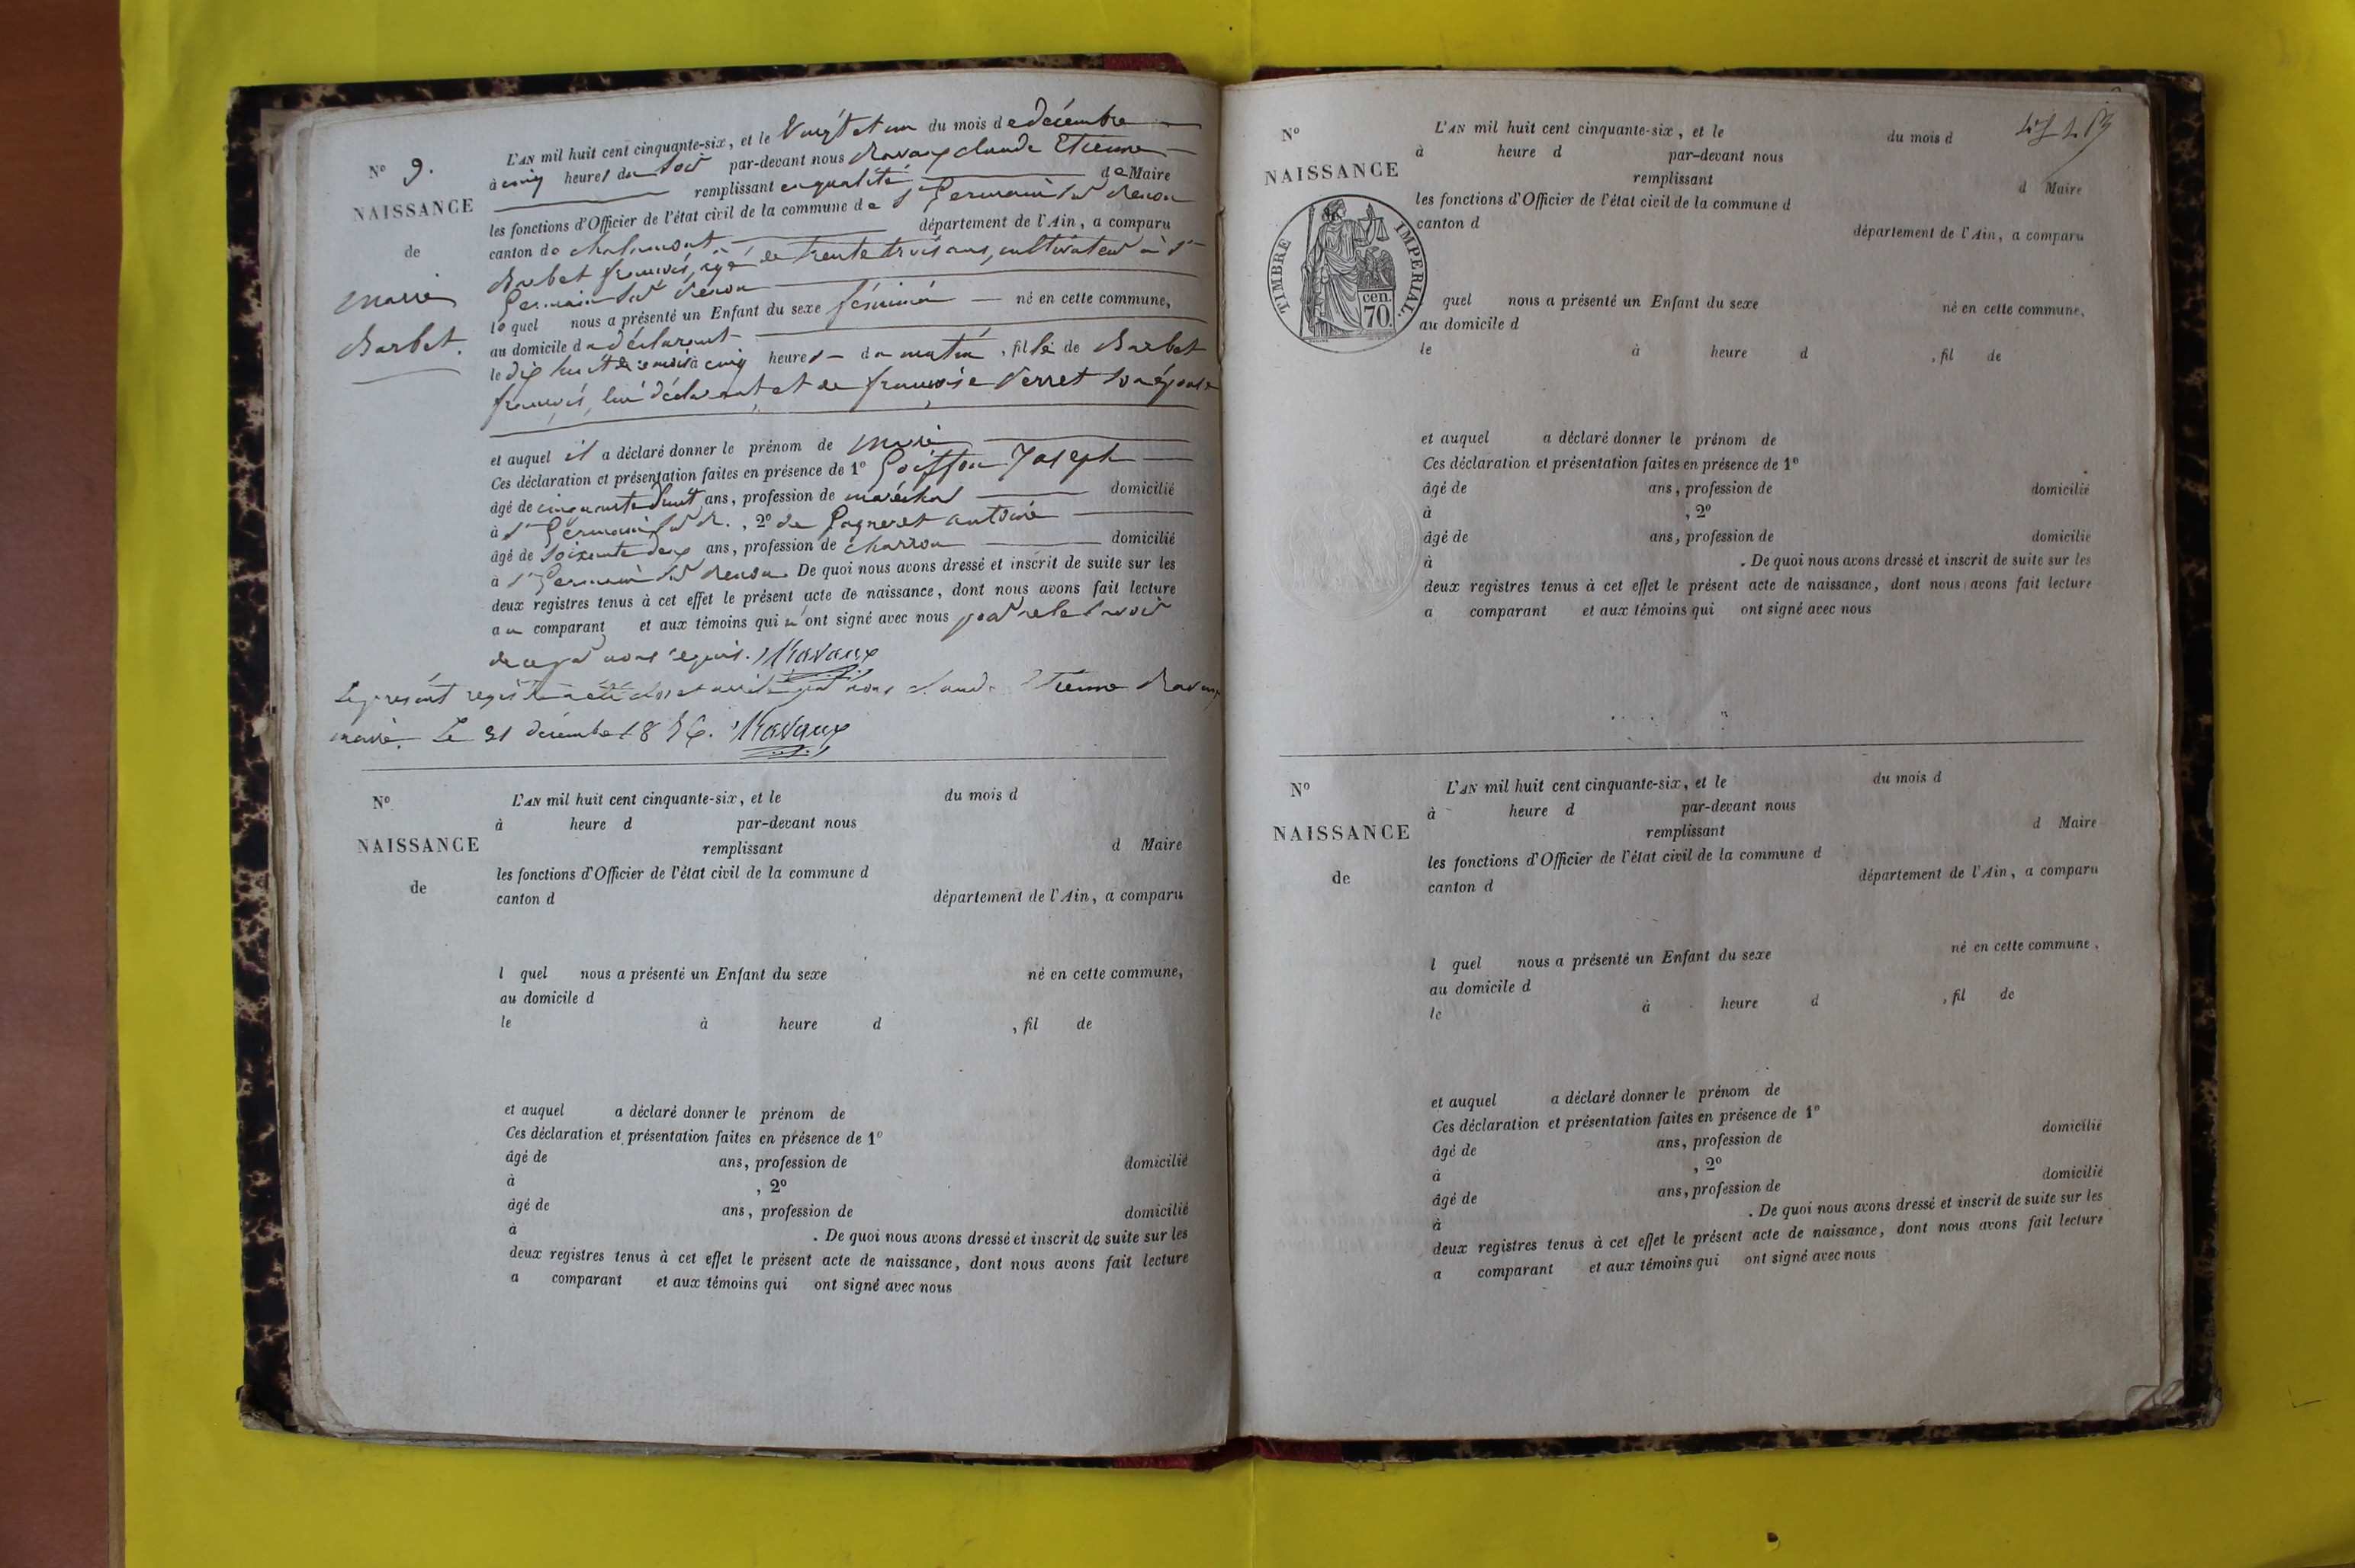 N° 9.
NAISSANCE
de
Marie
Barbet.
L'AN mil huit cent cinquante-six, et le Vingt et un du mois de décembre
à cinq heures du soir par-devant nous Ravaux Claude Etienne
remplissant en qualité de Maire
les fonctions d'Officier de l'état civil de la commune de St Germain sur Renon
canton de Chalamont département de l'Ain, a comparu
Barbet françois, âgé de trente trois ans, cultivateur à St
Germain sur Renon
lequel nous a présenté un Enfant du sexe féminin né en cette commune,
au domicile du déclarant
le dix huit de ce mois à cinq heures du matin, fille de Barbet
françois, lui déclarant et de françoise Perret son épouse
et auquel il a déclaré donner le prénom de Marie
Ces déclaration et présentation faites en présence de 1° Goiffon Joseph
âgé de cinquante huit ans, profession de maréchal domicilié
à St Germain sur R., 2° de Pagneret antoine
âgé de soixante deux ans, profession de charron domicilié
à St Germain sur Renon. De quoi nous avons dressé et inscrit de suite sur les
deux registres tenus à cet effet le présent acte de naissance, dont nous avons fait lecture
au comparant et aux témoins qui n'ont signé avec nous pour ne le savoir
de ce par nous requis. Ravaux
Le présent registre a été clos et arrêté par nous Claude Etienne Ravaux
maire. Le 31 décembre 1856. Ravaux
N°
NAISSANCE
de
L'AN mil huit cent cinquante-six, et le du mois d
à heure d par-devant nous
remplissant d Maire
les fonctions d'Officier de l'état civil de la commune d
canton d département de l'Ain, a comparu
l quel nous a présenté un Enfant du sexe né en cette commune,
au domicile d
le à heure d , fil de
et auquel a déclaré donner le prénom de
Ces déclaration et présentation faites en présence de 1°
âgé de ans, profession de domicilié
à , 2°
âgé de ans, profession de domicilié
à . De quoi nous avons dressé et inscrit de suite sur les
deux registres tenus à cet effet le présent acte de naissance, dont nous avons fait lecture
a comparant et aux témoins qui ont signé avec nous
N°
NAISSANCE
TIMBRE IMPERIAL.
cen.
70.
L'AN mil huit cent cinquante-six, et le du mois d
à heure d par-devant nous
remplissant d Maire
les fonctions d'Officier de l'état civil de la commune d
canton d département de l'Ain, a comparu
quel nous a présenté un Enfant du sexe né en cette commune,
au domicile d
le à heure d , fil de
et auquel a déclaré donner le prénom de
Ces déclaration et présentation faites en présence de 1°
âgé de ans, profession de domicilié
à , 2°
âgé de ans, profession de domicilié
à . De quoi nous avons dressé et inscrit de suite sur les
deux registres tenus à cet effet le présent acte de naissance, dont nous avons fait lecture
a comparant et aux témoins qui ont signé avec nous
N°
NAISSANCE
de
L'AN mil huit cent cinquante-six, et le du mois d
à heure d par-devant nous
remplissant d Maire
les fonctions d'Officier de l'état civil de la commune d
canton d département de l'Ain, a comparu
l quel nous a présenté un Enfant du sexe né en cette commune,
au domicile d
le à heure d , fil de
et auquel a déclaré donner le prénom de
Ces déclaration et présentation faites en présence de 1°
âgé de ans, profession de domicilié
à , 2°
âgé de ans, profession de domicilié
à . De quoi nous avons dressé et inscrit de suite sur les
deux registres tenus à cet effet le présent acte de naissance, dont nous avons fait lecture
a comparant et aux témoins qui ont signé avec nous